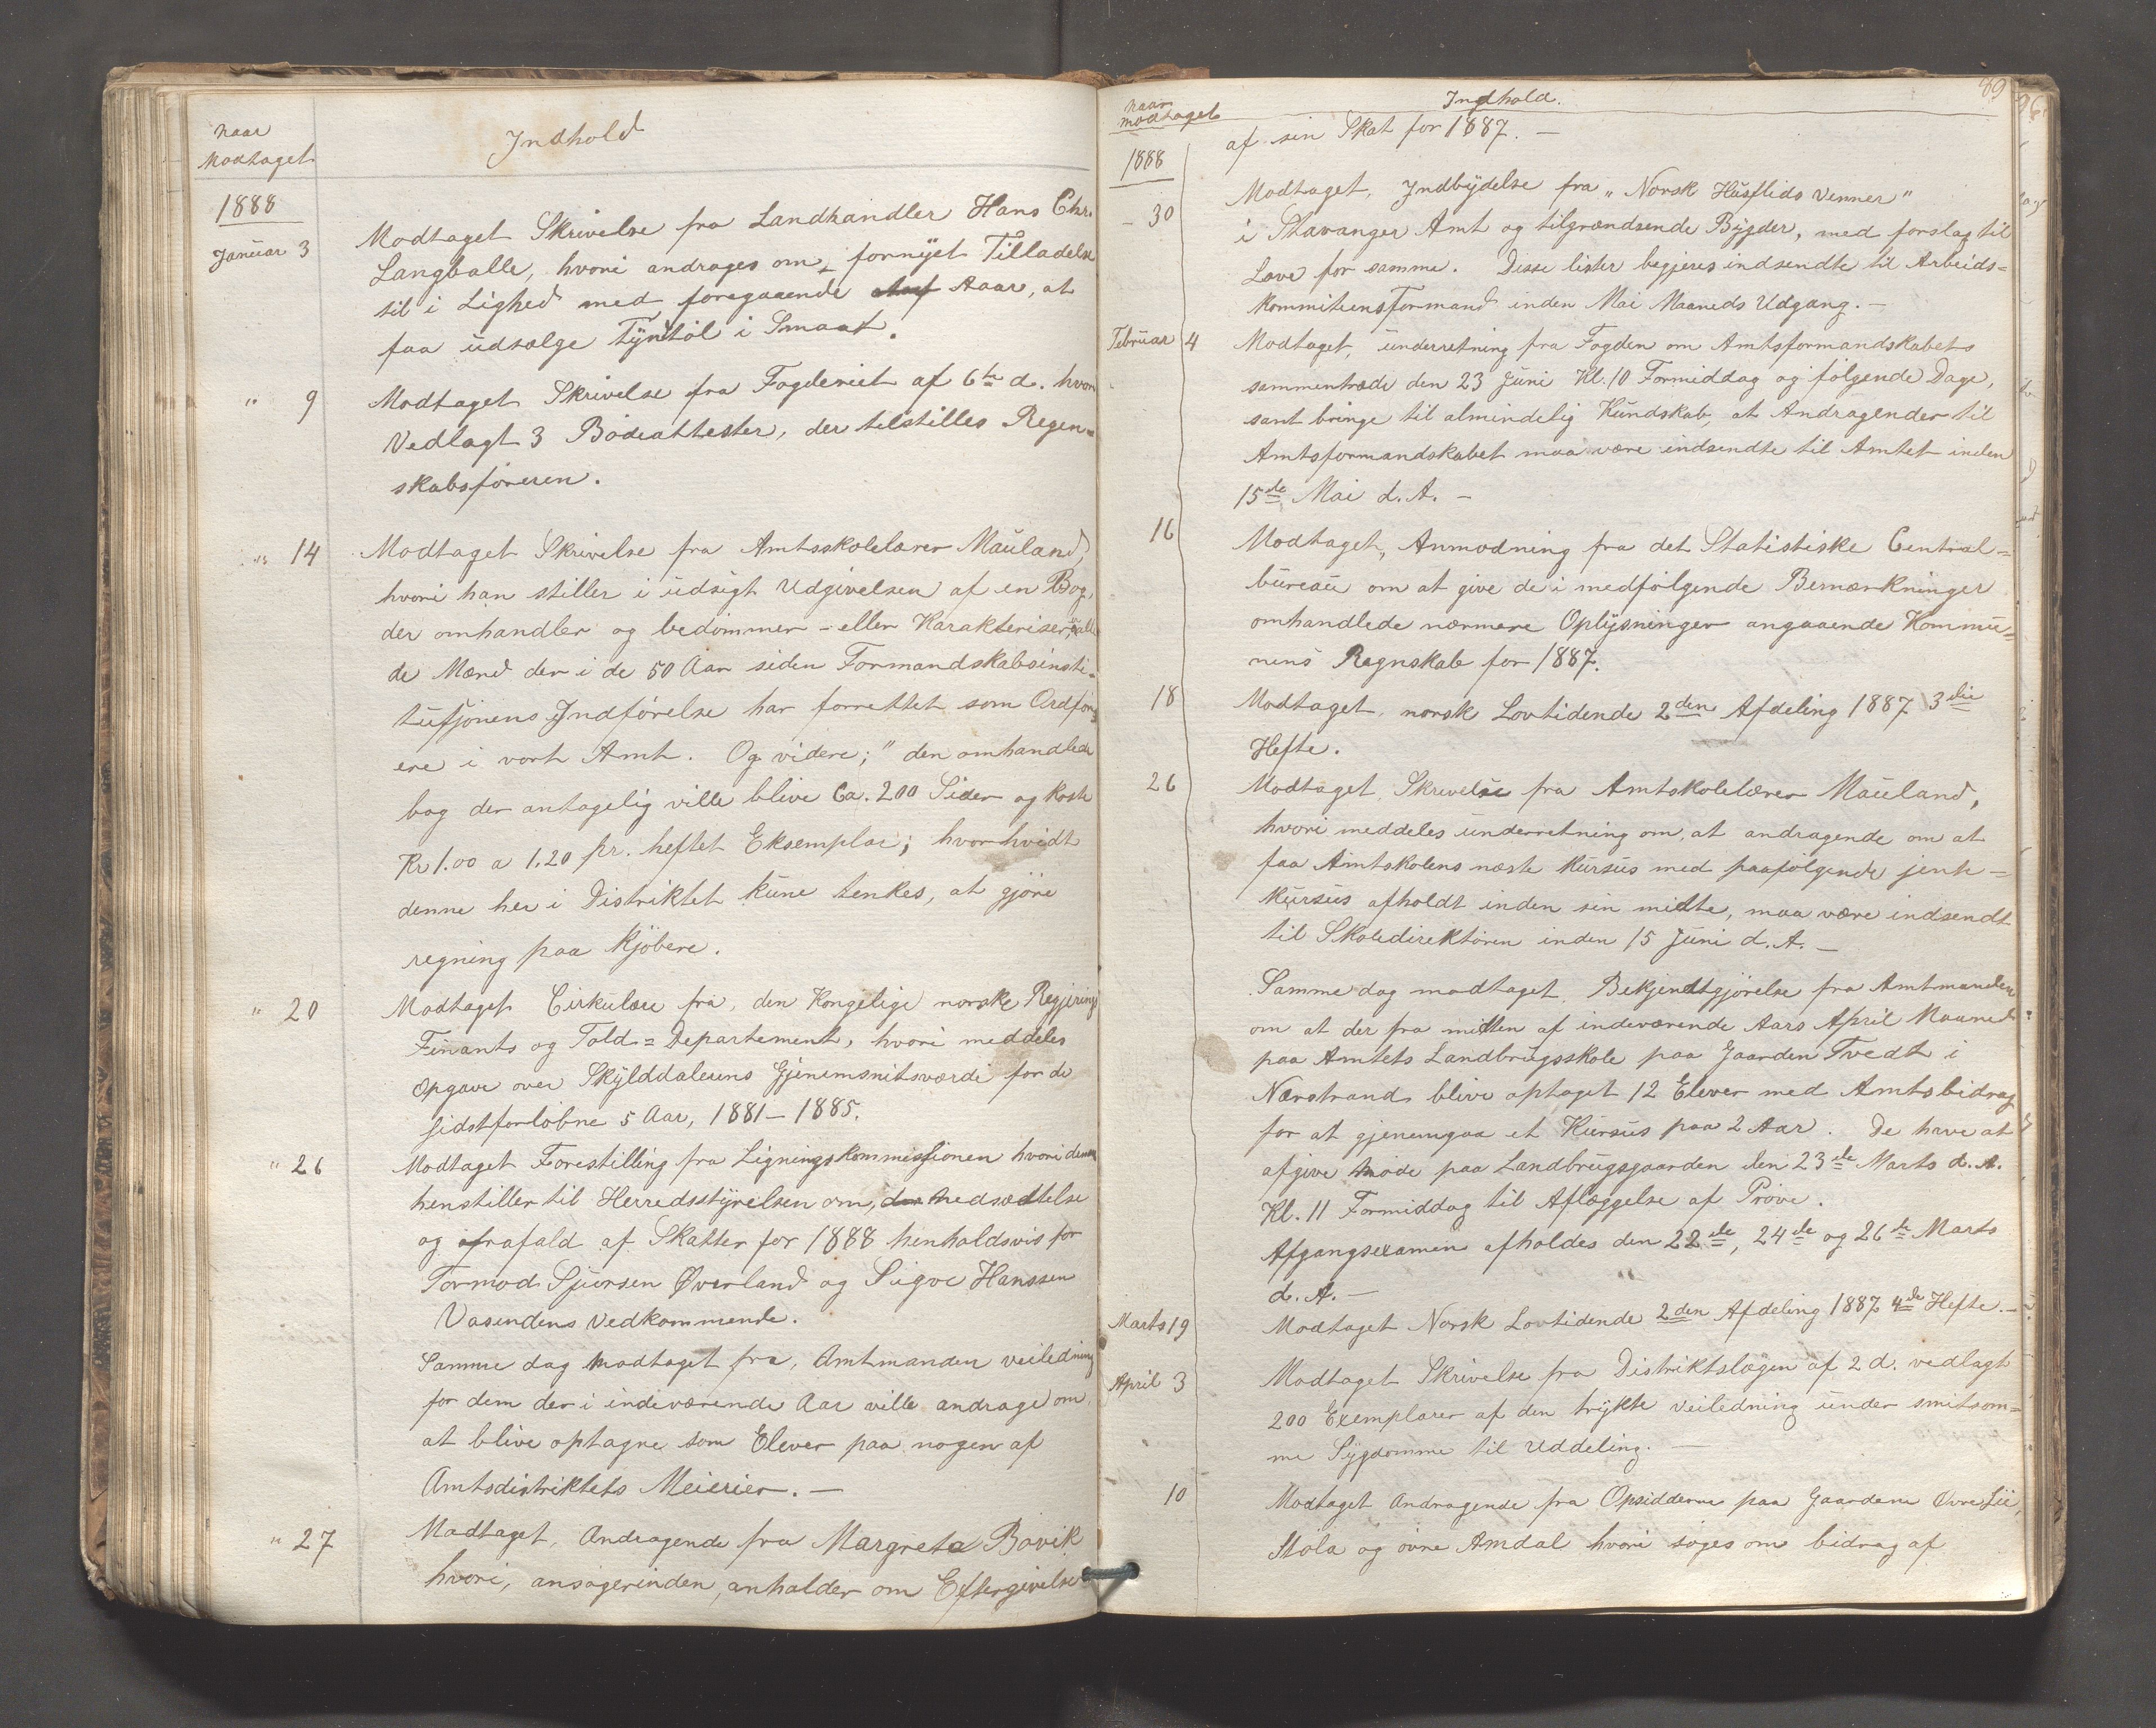 Naar
Modtaget
Indhold
1888
Januar 3
Modtaget Skrivelse fra Landhandler Hans Chr.
Langballe, hvori andrages om, fornyet Tilladelse
til i Lighed med foregaaende Aaar, at
faa udsælge Tyntöl i Smaat.
" 9
Modtaget Skrivelse fra Fogderiet af 6te d. hvori
Vedlagt 3 Bödeattester, der tilstilles Regen-
skabsföreren.
" 14
Modtaget Skrivelse fra Amtsskolelærer Mauland,
hvori han stiller i udsigt Udgivelsen af en Bog,
der omhandler og bedömmer - eller Karakteriserer alle
de Mænd der i de 50 Aar siden Formandskabsinsti-
tusjonens Indförelse har forrettet som Ordför-
ere i vort Amt. Og videre; "den omhandlede
bog der antagelig ville blive Ca. 200 Sider og koste
Kr 1.00 a 1.20 pr. heftet Eksemplar; hvorhvidt
denne her i Distriktet kune tenkes, at gjöre
regning paa Kjöbere.
" 20
Modtaget Cirkulære fra, den Kongelige norske Regjerings
Finants og Told= Departement, hvori meddeles
Opgave over Skylddalerens Gjenemsnitsværdi for de
sidstforlöbne 5 Aar, 1881-1885.
" 26
Modtaget Forestilling fra Ligningskommissionen hvori denne
henstiller til Herredsstyrelsen om, den nedsættelse
og afrafald af Skatter for 1888 henholdsvis for
Tormod Sjursen Øverland og Sigve Hanssen
Vasendens Vedkommende.
Samme dag Modtaget fra, Amtmanden veiledning
for dem der i indeværende Aar ville andrage om,
at blive optagne som Elever paa nogen af
Amtsdistriktets Meierier. -
" 27
Modtaget, Andragende fra Margreta Bövik
hvori, ansögerinden, anholder om Eftergivelse
Naar
modtaget
Indhold.
89
1888
af sin Skat for 1887. -
- 30
Modtaget, Indbydelse fra "Norsk Husflids Venner"
i Stavanger Amt og tilgrændsende Bygder, med forslag til
Love for samme. Disse lister begjeres indsendte til Arbeids-
kommiteensFormand inden Mai Maaneds Udgang. -
Februar 4
Modtaget, underretning fra Fogden om Amtsformandskabets
sammentræde den 23 Juni Kl. 10 Formiddag og fölgende Dage,
samt bringe til almindelig Kundskab, at Andragender til
Amtsformandskabet maa være indsendte til Amtet inden
15de Mai d. A. -
16
Modtaget, Anmodning fra det Statistiske Central-
bureau om at give de i medfölgende Bemærkninger
omhandlede nærmere Oplysninger angaaende Kommu-
nens Regnskab for 1887.
18
Modtaget, norsk Lovtidende 2den Afdeling 1887 3die
Hefte.
26
Modtaget, Skrivelse fra Amtskolelærer Mauland,
hvori meddeles underretning om, at andragende om at
faa Amtskolens næste kursus med paafölgende jente-
kursus afholdt inden sin midte, maa være indsendt
til Skoledirektören inden 15 Juni d. A. -
Samme dag modtaget, Bekjendtgjörelse fra Amtmanden
om at der fra midten af indeværende Aars April Maaned
paa Amtets Landbrugsskole paa Gaarden Tvedt i
Nærstrand, blive optaget 12 Elever med Amtsbidrag
for at gjenemgaa et Kursus paa 2 Aar. De have at
afgive möde paa Landbrugsgaarden den 23de Marts d. A.
Kl. 11 Formiddag til Aflæggelse af Pröve.
Afgangsexamen afholdes den 22de, 24de og 26de Marts
d. A. -
Marts 19
Modtaget Norsk Lovtidende 2den Afdeling 1887 4de Hefte. -
April 3
Modtaget Skrivelse fra Distriktslægen af 2 d. vedlagt
200 Exemplarer af den trykte Veiledning under smitsom-
me Sygdomme til Uddeling. -
10
Modtaget Andragende fra Opsidderne paa Gaardene Övre Lie,
Stöla og övre Amdal hvori söges om bidrag af